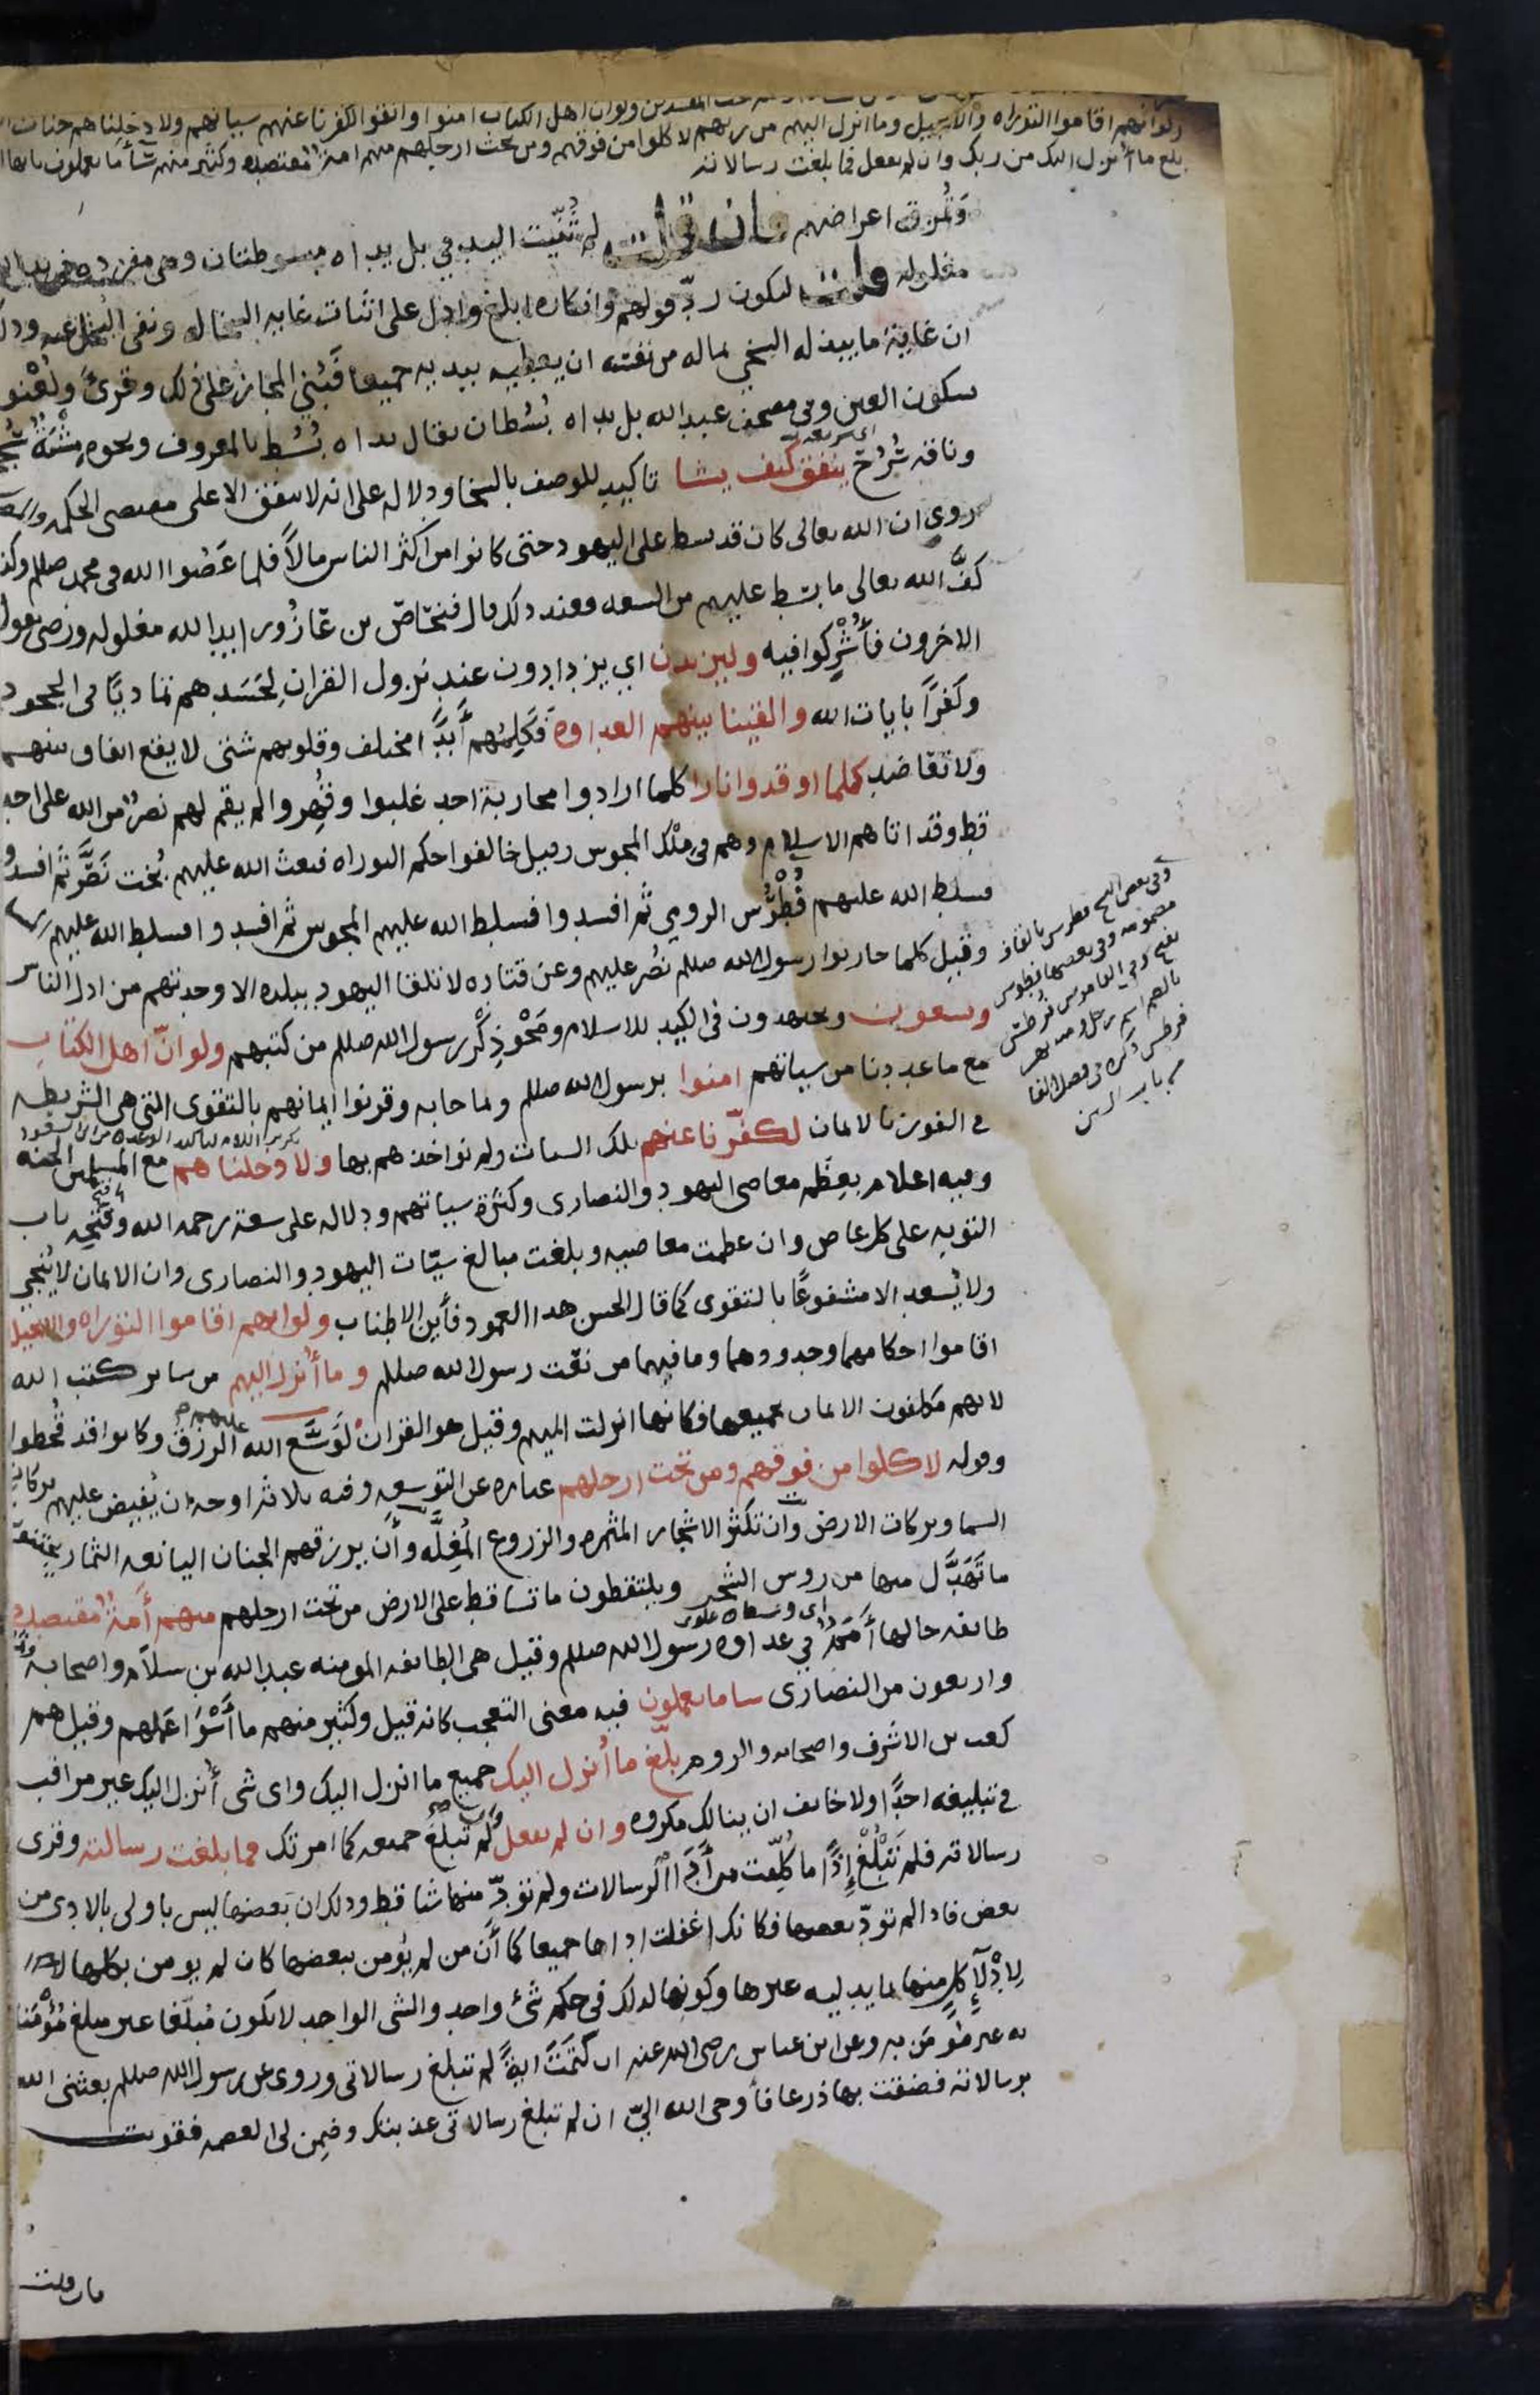 ولوانهم اقاموا التوراه والانجيل وما انزل اليهم من ربهم لاكلوا من فوقهم ومن تحت ارجلهم منهم امة مقتصده وكثير منهم سأ ما يعملون يا ايها
بلغ ما أنزل اليك من ربك وان لم تفعل فما بلغت رسالاته
وتُمزق اعراضهم فان قلت لم ثُنّيت اليد في بل يداه مبسوطتان وهي مفرده في يد الله
مغلوله قلت ليكون ردّ قولهم وانكاره ابلغ وادل على اثبات غايه السخا له ونفى البخل عنه وذلك
ان غاية ما يبذله السخي بماله من نفسه ان يعطيه بيديه جميعا فبُني المجاز على ذلك وقرئ ولُعْنوا
بسكون العين وفي مصحف عبد الله بل يداه بُسُطان يقال يداه بُسُط بالمعروف ونحوه مِشْيَةٌ سُجُح
وناقه سُرُح ينفق كيف يشا تاكيد للوصف بالسخا ودلاله على انه لا ينفق الا على مقتضى الحكمه
روى ان الله تعالى كان قد بسط على اليهود حتى كانوا من اكثر الناس مالًا فلما عَصَوا الله في محمد صللم وكذبوه
كفَّ الله تعالى ما بسط عليهم من السعه فعند ذلك قال فنحاص بن عازُورا يد الله مغلوله ورضى بقوله
الاخرون فأُشْرِكوا فيه وليزيدن اي يزدادون عند نزول القران لحَسَدهم تماديًا في الجحود
وكفرًا بايات الله والقينا بينهم العداوة فكَلِمُهم أبدًا مختلف وقلوبهم شتى لا يقع اتفاق بينهم
ولا تعاضد كلما اوقدوا نارا كلما ارادوا محاربة احد غلبوا وقُهِروا لم يقم لهم نصرٌ من الله على احد
قط وقد اتاهم الاسلام وهم في مِلْك المجوس وقيل خالفوا حكم التوراه فبعث الله عليهم بُخت نَصَّر ثم افسدوا
فسلط الله عليهم فُطْرُس الرومي ثم افسدوا فسلط الله عليهم المجوس ثم افسدوا فسلط الله عليهم
وقيل كلما حاربوا رسول الله صللم نُصر عليهم وعن قتاده لا تلقا اليهود ببلده الا وجدتهم من اذل الناس
ويسعون ويجتهدون في الكيد للاسلام ومَحْو ذِكْر رسول الله صللم من كتبهم ولو انّ اهل الكتاب
مع ما عددنا من سياتهم امنوا برسول الله صللم وبما جا به وقرنوا ايمانهم بالتقوى التي هي الشريطه
في الفوز بالايمان لكفّرنا عنهم تلك السيات ولم نواخذهم بها ولادخلناهم مع المسلمين الجنه
وفيه اعلام بعِظَم معاصى اليهود والنصارى وكثرة سياتهم ودلاله على سعة رحمه الله وفتحِه باب
التوبه على كل عاص وان عظمت معاصيه وبلغت مبالغ سيّات اليهود والنصارى وان الايمان لا يُنجي
ولا يُسعد الا مشفوعًا بالتقوى كما قال الحسن هذا العمود فأين الاطناب ولوانهم اقاموا التوراه والانجيل
اقاموا احكامهما وحدودهما وما فيهما من نعت رسول الله صللم وما أنزل اليهم من ساير كتب الله
لانهم مكلفون الايمان بجميعها فكانها انزلت اليهم وقيل هو القران لوَسَّع الله عليهم الرزق وكانوا قد قُحطوا
وقوله لاكلوا من فوقهم ومن تحت ارجلهم عباره عن التوسعه وفيه ثلاثه اوجه ان يُفيض عليهم بركات
السما وبركات الارض وان تكثر الاشجار المثمره والزروع المُغِلَّه وأن يرزقهم الجنان اليانعه الثمار يجتنون
ما تَهَدَّل منها من روس الشجر ويلتقطون ما تساقط على الارض من تحت ارجلهم منهم أمة مقتصدة
طايفه حالها أَمَمٌ في عداوه رسول الله صللم وقيل هى الطايفه المومنه عبد الله بن سلام واصحابه
واربعون من النصارى سا ما يعملون فيه معنى التعجب كانه قيل وكثير منهم ما أَسْوَأ عملهم وقيل هم
كعب بن الاشرف واصحابه والروم بلّغ ما أُنزل اليك جميع ما انزل اليك واى شى أُنزل اليك غير مراقب
في تبليغه احدًا ولا خايف ان ينالك مكروه وان لم تفعل وان لم تبلغ جميعه كما امرتك فما بلغت رسالته وقرى
رسالاته فلم تَبْلُغْ إذًا ما كُلِّفت من أَدَاء الرسالات ولم تؤدّ منها شيا قط وذلك ان بعضها ليس باولى بالادا من
بعض فاذا لم تودّ بعضها فكانك اغفلت اداها جميعا كما أنّ من لم يُؤمن ببعضها كان لم يومن بكلها
لإدْلآءِ كلٍ منها بما يدليه غيرها وكونها لذلك في حكم شئ واحد والشى الواحد لا يكون مُبلّغا غير مبلغ مُؤْمَنا
به غير مُؤمَن به وعن ابن عباس رضى الله عنه ان كَتَمْتَ ايةً لم تبلغ رسالاتى وروى عن رسول الله صللم بعثنى الله
برسالاته فضقت بها ذرعا فأوحى الله اليّ ان لم تبلغ رسالاتى عذبتك وضمِن لى العصمه فقويت
فان قلت